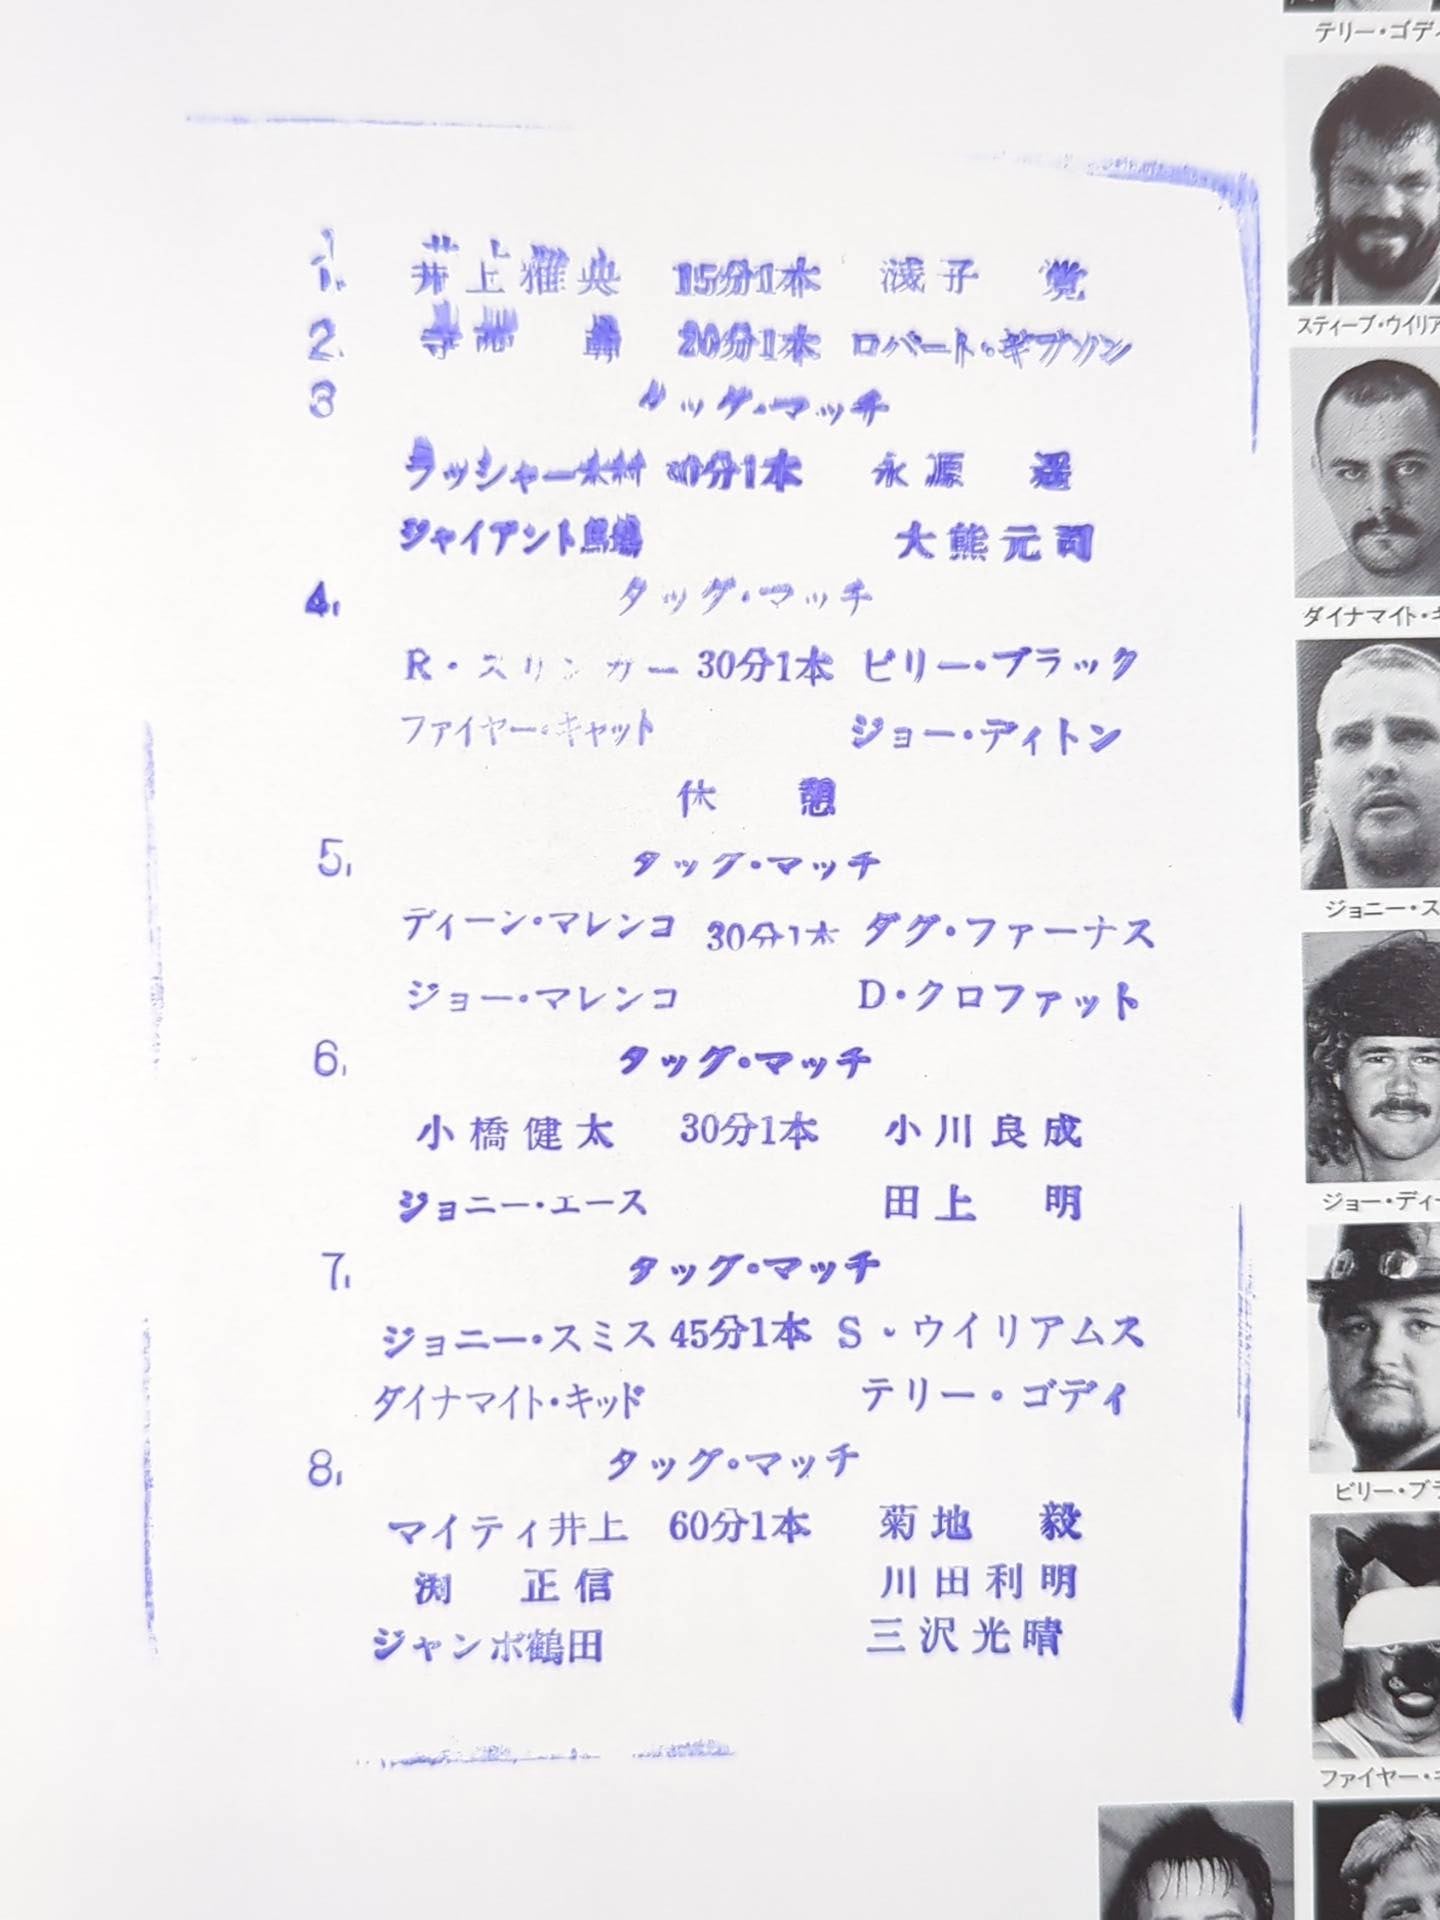 1. 井上雅央 15分1本 浅子 覚
2. 20分1本 ロバート・ギブソン
3 タッグ・マッチ
ラッシャー木村 30分1本 永源 遥
ジャイアント馬場 大熊元司
4. タッグ・マッチ
R・スリンガー 30分1本 ビリー・ブラック
ファイヤー・キャット ジョー・ディトン
休 憩
5. タッグ・マッチ
ディーン・マレンコ 30分1本 ダグ・ファーナス
ジョー・マレンコ D・クロファット
6. タッグ・マッチ
小橋健太 30分1本 小川良成
ジョニー・エース 田上 明
7. タッグ・マッチ
ジョニー・スミス 45分1本 S・ウイリアムス
ダイナマイト・キッド テリー・ゴディ
8. タッグ・マッチ
マイティ井上 60分1本 菊地 毅
渕 正信 川田利明
ジャンボ鶴田 三沢光晴
テリー・ゴデ
スティーブ・ウイリア
ダイナマイト・キ
ジョニー・ス
ジョー・ディ
ビリー・ブラ
ファイヤー・キ